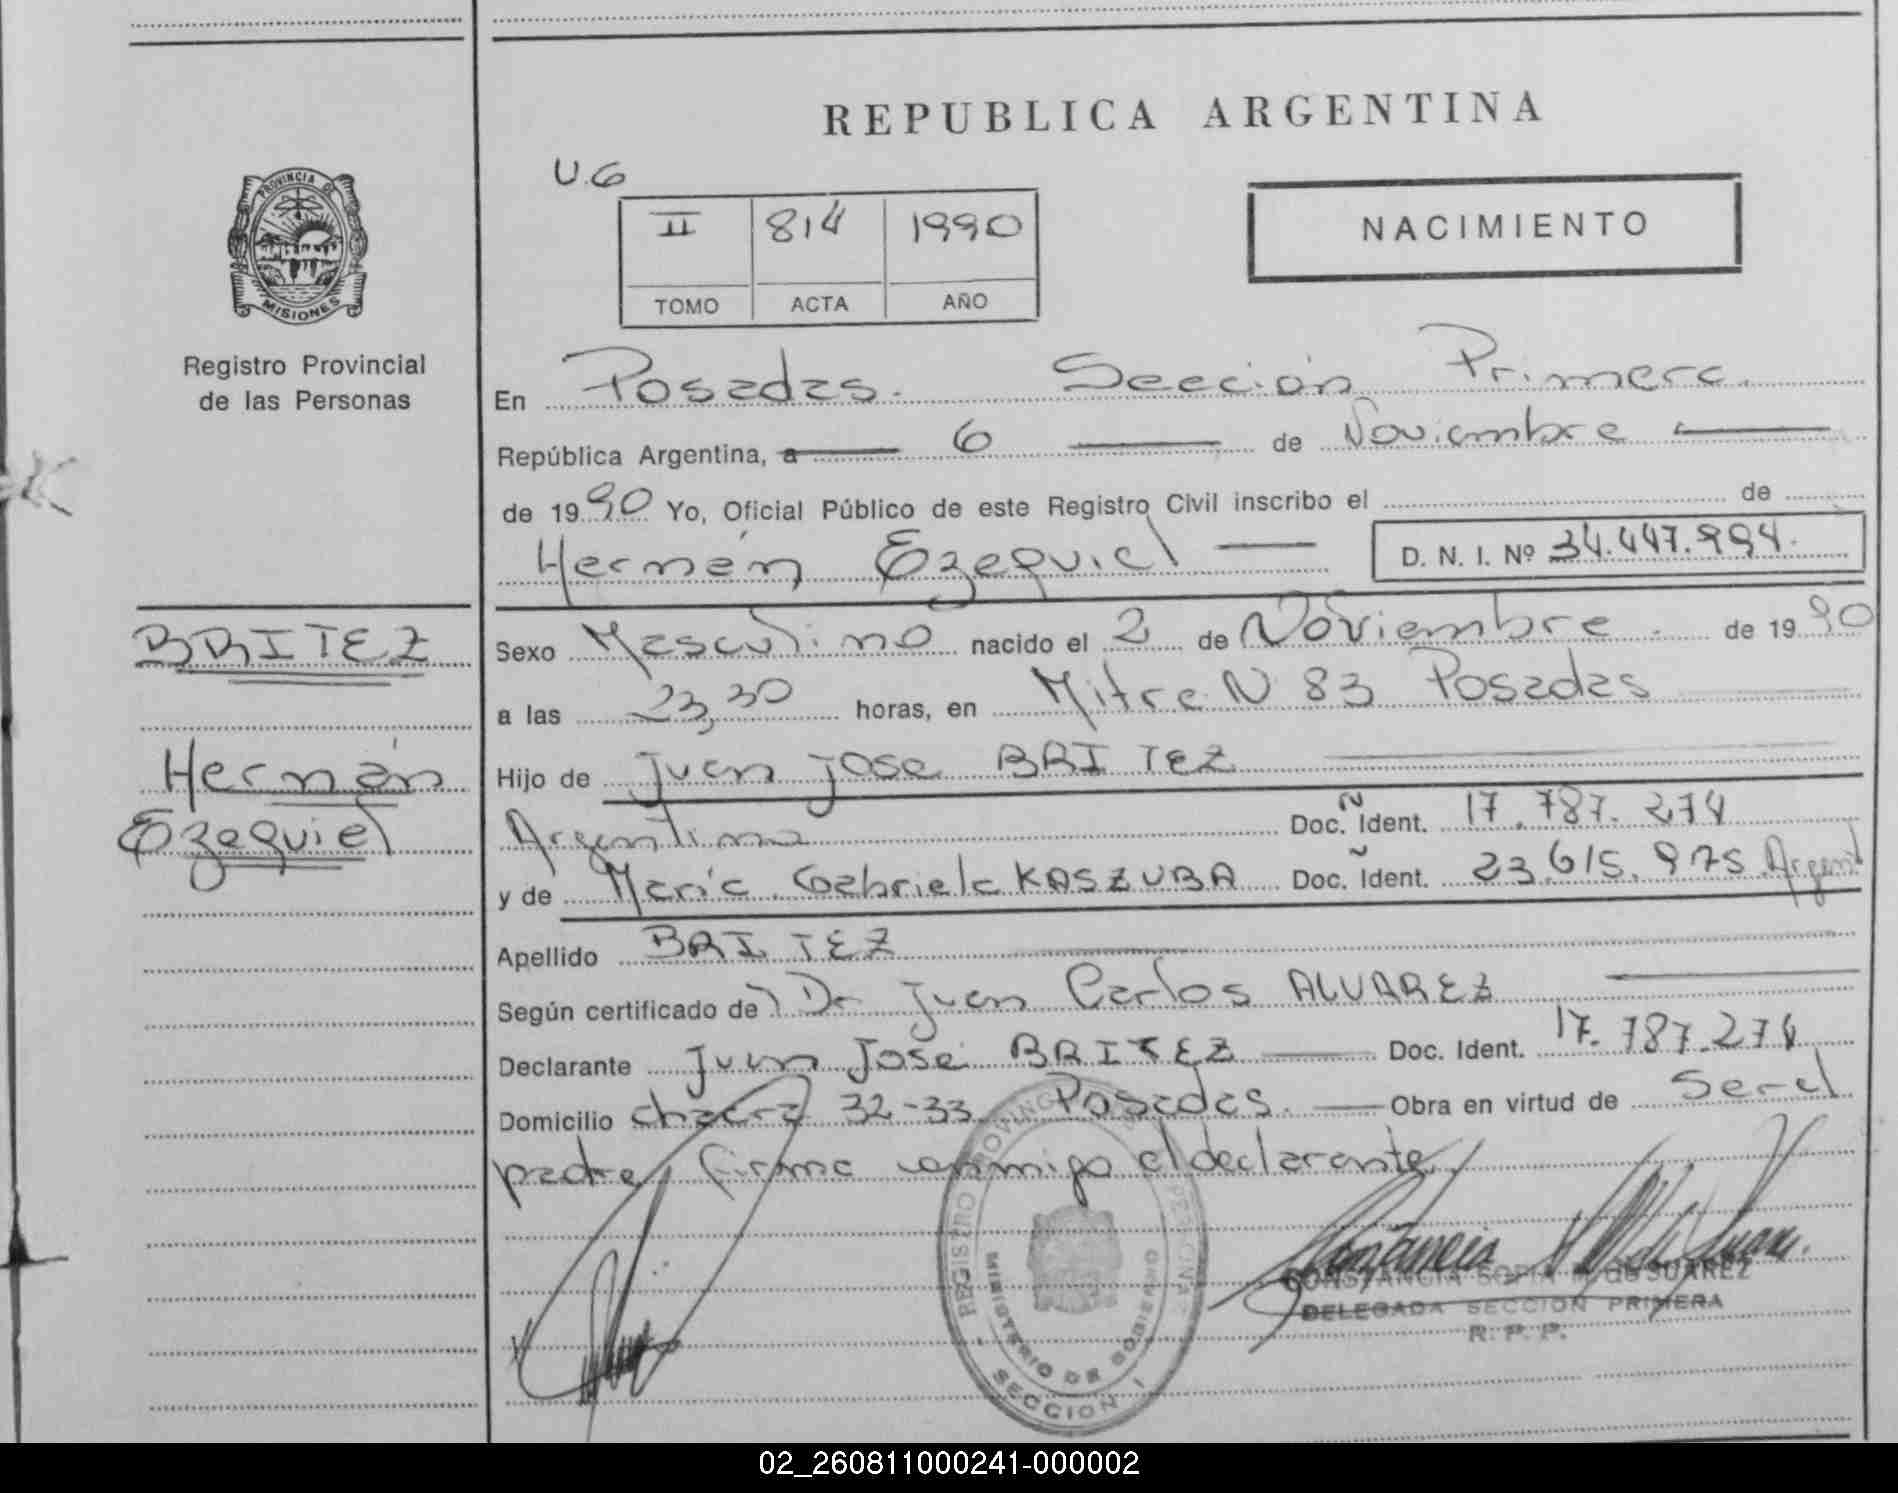 REPUBLICA ARGENTINA
U.G
II 814 1990
TOMO ACTA AÑO
NACIMIENTO
PROVINCIA DE
MISIONES
Registro Provincial
de las Personas
En Posadas. Sección Primera.
República Argentina, a 6 de Noviembre
de 1990 Yo, Oficial Público de este Registro Civil inscribo el de
Hernán Ezequiel D. N. I. Nº 34.447.994.
BRITEZ
Hernán
Ezequiel
Sexo Masculino nacido el 2 de Noviembre. de 1990
a las 23,30 horas, en Mitre N 83 Posadas
Hijo de Juan José BRITEZ
Argentino Doc. Ident. 17.787.274
y de María Gabriela KASZUBA Doc. Ident. 23.615.975 Argent
Apellido BRITEZ
Según certificado de Dr Juan Carlos ALVAREZ
Declarante Juan José BRITEZ Doc. Ident. 17.787.274
Domicilio chacra 32-33 Posadas. Obra en virtud de Ser el
padre, firma conmigo el declarante
REGISTRO PROVINCIAL PERSONAS
MINISTERIO DE GOBIERNO
SECCION I
CONSTANCIA SOFIA SUAREZ
DELEGADA SECCION PRIMERA
R. P. P.
02_260811000241-000002